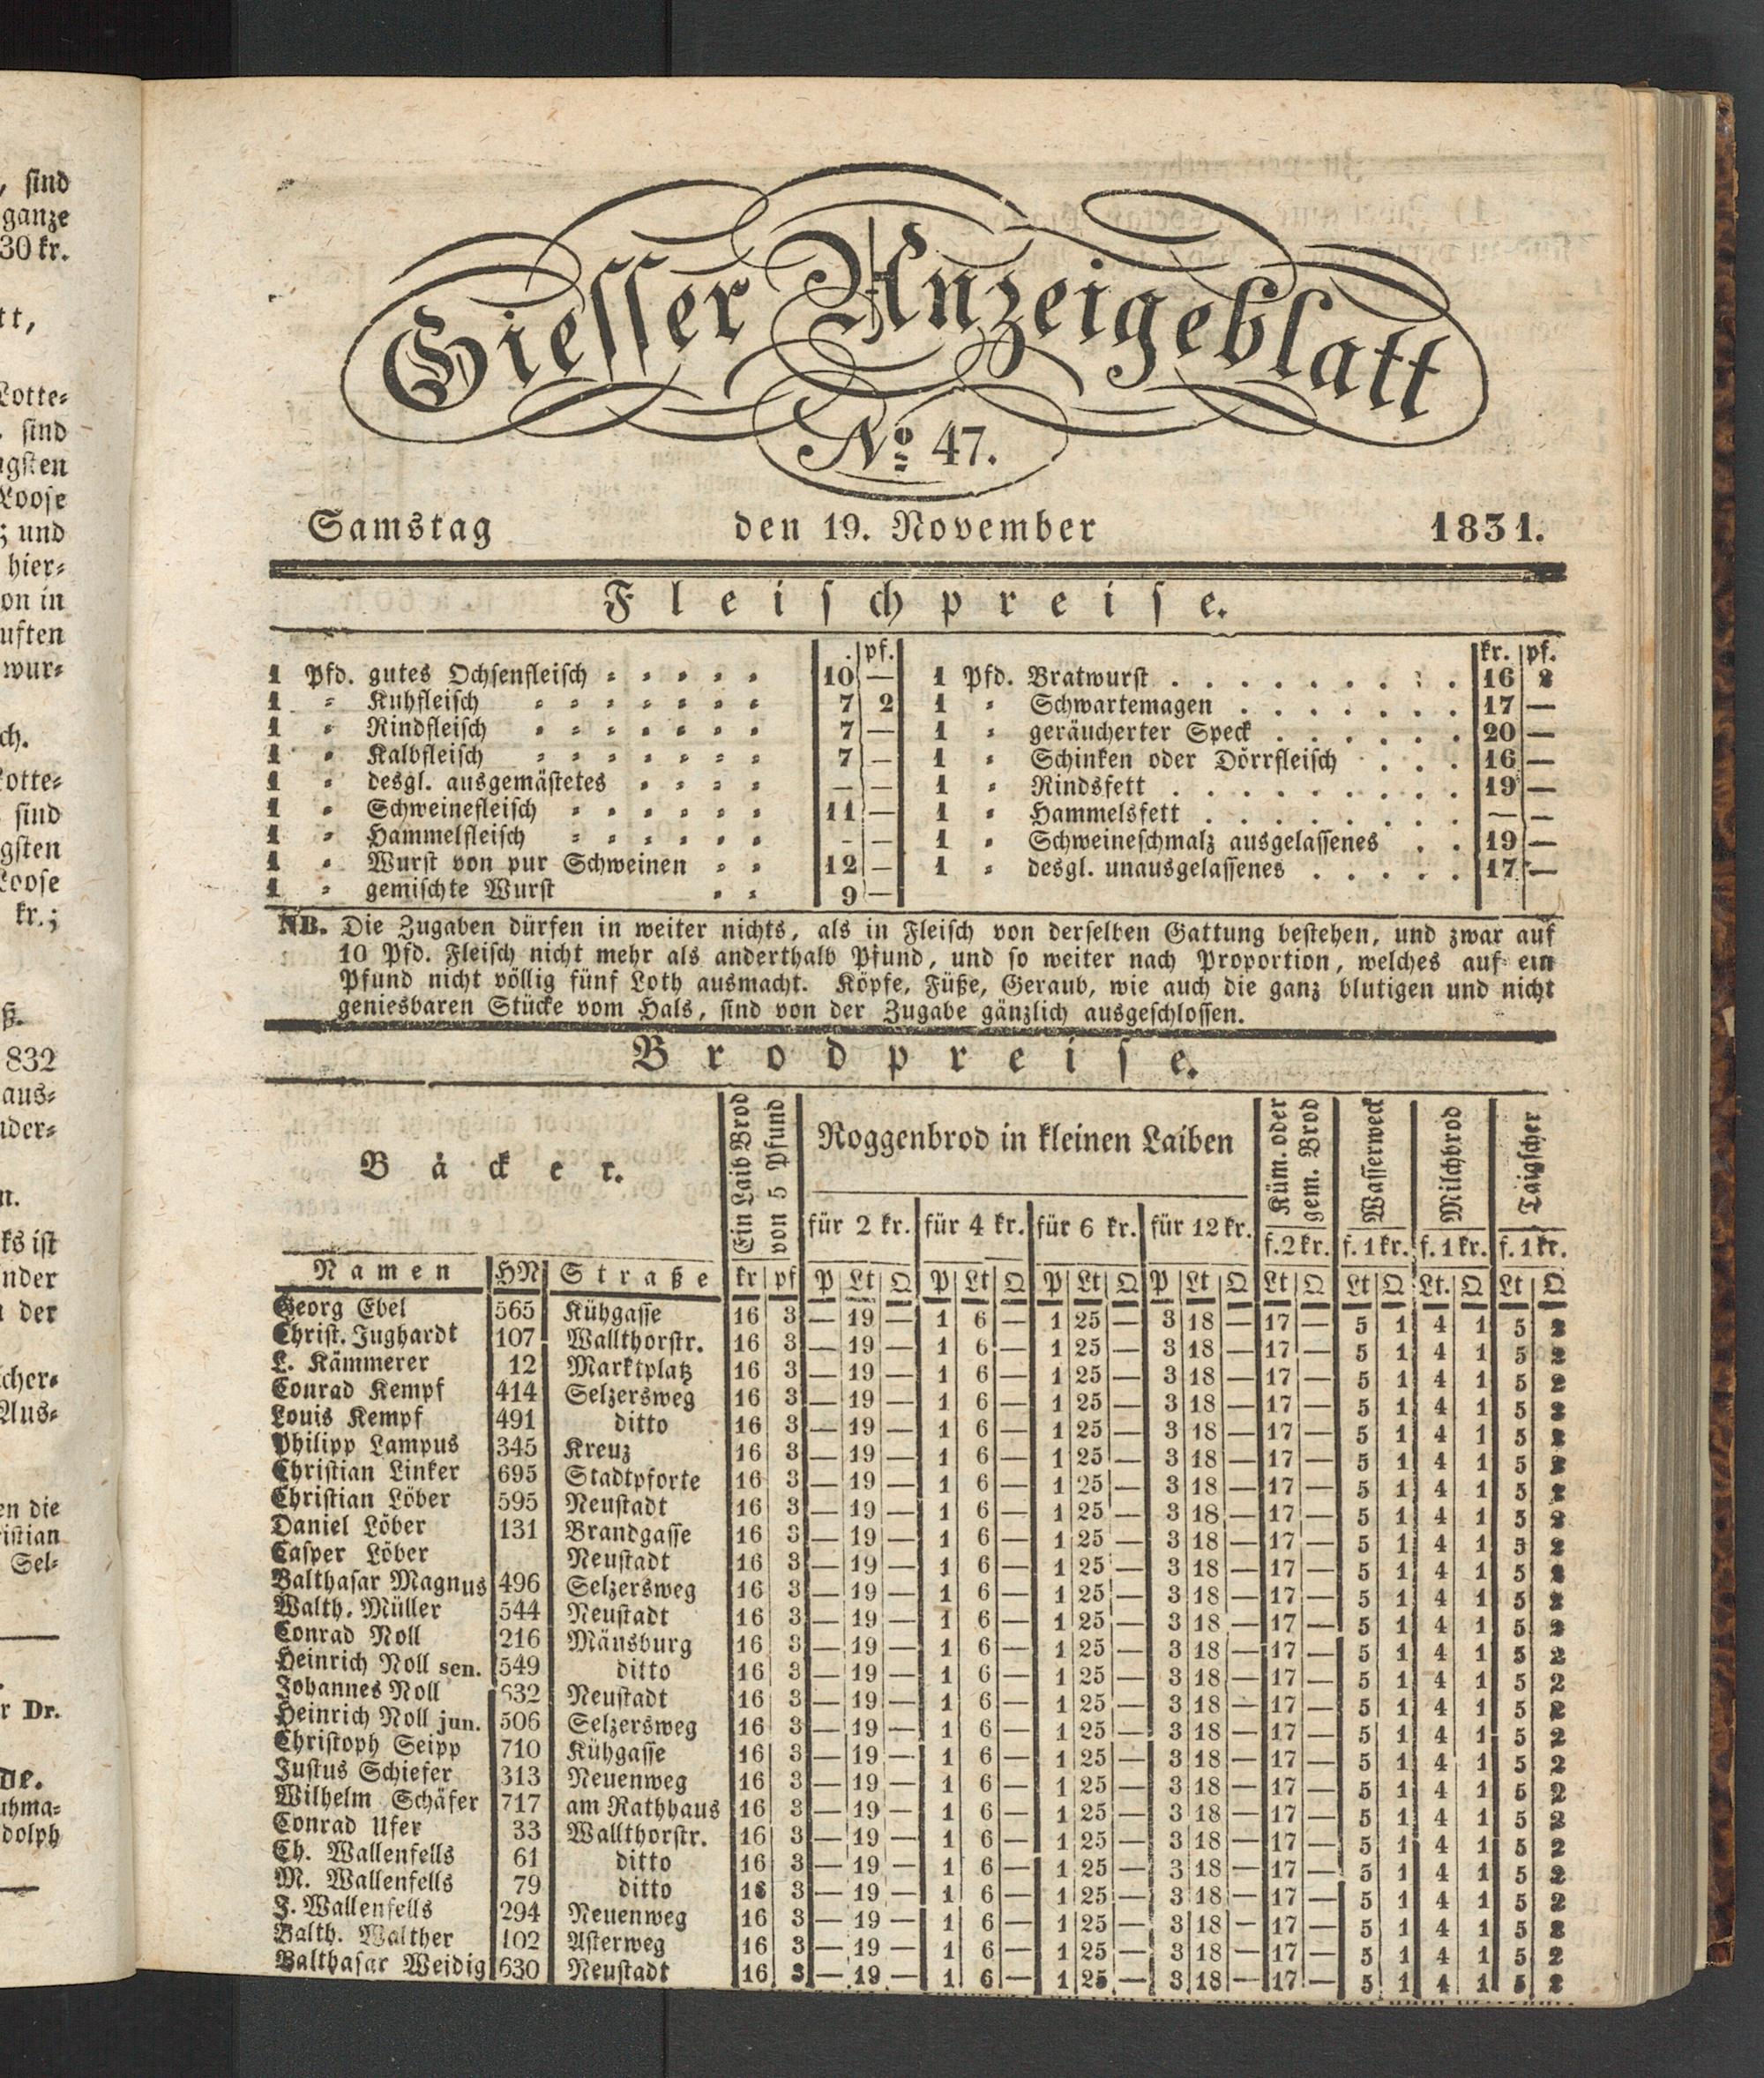 , sind
ganze
30 kr.
tt,
Lotte-
sind
ngsten
Loose
; und
hier-
on in
uften
wur-
ch.
Lotte-
sind
gsten
Loose
kr.;
ß.
832
aus-
nder-
n.
ks ist
nder
n der
cher-
Aus-
en die
istian
Sel-
r Dr.
de.
uhma-
dolph
Giesser Anzeigeblatt
No 47.
Samstag den 19. November 1831.
Fleischpreise.
pf. kr. pf.
1 Pfd. gutes Ochsenfleisch 10 — 1 Pfd. Bratwurst 16 2
1 = Kuhfleisch 7 2 1 = Schwartemagen 17 —
1 = Rindfleisch 7 — 1 = geräucherter Speck 20 —
1 = Kalbfleisch 7 — 1 = Schinken oder Dörrfleisch 16 —
1 = desgl. ausgemästetes — — 1 = Rindsfett 19 —
1 = Schweinefleisch 11 — 1 = Hammelsfett — —
1 = Hammelfleisch — — 1 = Schweineschmalz ausgelassenes 19 —
1 = Wurst von pur Schweinen 12 — 1 = desgl. unausgelassenes 17 —
1 = gemischte Wurst 9 —
NB. Die Zugaben dürfen in weiter nichts, als in Fleisch von derselben Gattung bestehen, und zwar auf
10 Pfd. Fleisch nicht mehr als anderthalb Pfund, und so weiter nach Proportion, welches auf ein
Pfund nicht völlig fünf Loth ausmacht. Köpfe, Füße, Geraub, wie auch die ganz blutigen und nicht
geniesbaren Stücke vom Hals, sind von der Zugabe gänzlich ausgeschlossen.
Brodpreise.
Bäcker.
Ein Laib Brod
von 5 Pfund
Roggenbrod in kleinen Laiben
Küm. oder
gem. Brod
Wasserweck
Milchbrod
Täigscher
für 2 kr. für 4 kr. für 6 kr. für 12 kr. f. 2 kr. f. 1 kr. f. 1 kr. f. 1 kr.
Namen HN Straße kr pf P Lt Q P Lt Q P Lt Q P Lt Q Lt Q Lt Q Lt. Q Lt Q
Georg Ebel 565 Kühgasse 16 3 — 19 — 1 6 — 1 25 — 3 18 — 17 — 5 1 4 1 5 2
Christ. Jughardt 107 Wallthorstr. 16 3 — 19 — 1 6 — 1 25 — 3 18 — 17 — 5 1 4 1 5 2
L. Kämmerer 12 Marktplatz 16 3 — 19 — 1 6 — 1 25 — 3 18 — 17 — 5 1 4 1 5 2
Conrad Kempf 414 Selzersweg 16 3 — 19 — 1 6 — 1 25 — 3 18 — 17 — 5 1 4 1 5 2
Louis Kempf 491 ditto 16 3 — 19 — 1 6 — 1 25 — 3 18 — 17 — 5 1 4 1 5 2
Philipp Lampus 345 Kreuz 16 3 — 19 — 1 6 — 1 25 — 3 18 — 17 — 5 1 4 1 5 2
Christian Linker 695 Stadtpforte 16 3 — 19 — 1 6 — 1 25 — 3 18 — 17 — 5 1 4 1 5 2
Christian Löber 595 Neustadt 16 3 — 19 — 1 6 — 1 25 — 3 18 — 17 — 5 1 4 1 5 2
Daniel Löber 131 Brandgasse 16 3 — 19 — 1 6 — 1 25 — 3 18 — 17 — 5 1 4 1 5 2
Casper Löber Neustadt 16 3 — 19 — 1 6 — 1 25 — 3 18 — 17 — 5 1 4 1 5 2
Balthasar Magnus 496 Selzersweg 16 3 — 19 — 1 6 — 1 25 — 3 18 — 17 — 5 1 4 1 5 2
Walth. Müller 544 Neustadt 16 3 — 19 — 1 6 — 1 25 — 3 18 — 17 — 5 1 4 1 5 2
Conrad Noll 216 Mäusburg 16 3 — 19 — 1 6 — 1 25 — 3 18 — 17 — 5 1 4 1 5 2
Heinrich Noll sen. 549 ditto 16 3 — 19 — 1 6 — 1 25 — 3 18 — 17 — 5 1 4 1 5 2
Johannes Noll 632 Neustadt 16 3 — 19 — 1 6 — 1 25 — 3 18 — 17 — 5 1 4 1 5 2
Heinrich Noll jun. 506 Selzersweg 16 3 — 19 — 1 6 — 1 25 — 3 18 — 17 — 5 1 4 1 5 2
Christoph Seipp 710 Kühgasse 16 3 — 19 — 1 6 — 1 25 — 3 18 — 17 — 5 1 4 1 5 2
Justus Schiefer 313 Neuenweg 16 3 — 19 — 1 6 — 1 25 — 3 18 — 17 — 5 1 4 1 5 2
Wilhelm Schäfer 717 am Rathhaus 16 3 — 19 — 1 6 — 1 25 — 3 18 — 17 — 5 1 4 1 5 2
Conrad Ufer 33 Wallthorstr. 16 3 — 19 — 1 6 — 1 25 — 3 18 — 17 — 5 1 4 1 5 2
Ch. Wallenfells 61 ditto 16 3 — 19 — 1 6 — 1 25 — 3 18 — 17 — 5 1 4 1 5 2
M. Wallenfells 79 ditto 16 3 — 19 — 1 6 — 1 25 — 3 18 — 17 — 5 1 4 1 5 2
J. Wallenfells 294 Neuenweg 16 3 — 19 — 1 6 — 1 25 — 3 18 — 17 — 5 1 4 1 5 2
Balth. Walther 102 Asterweg 16 3 — 19 — 1 6 — 1 25 — 3 18 — 17 — 5 1 4 1 5 2
Balthasar Weidig 630 Neustadt 16 3 — 19 — 1 6 — 1 25 — 3 18 — 17 — 5 1 4 1 5 2